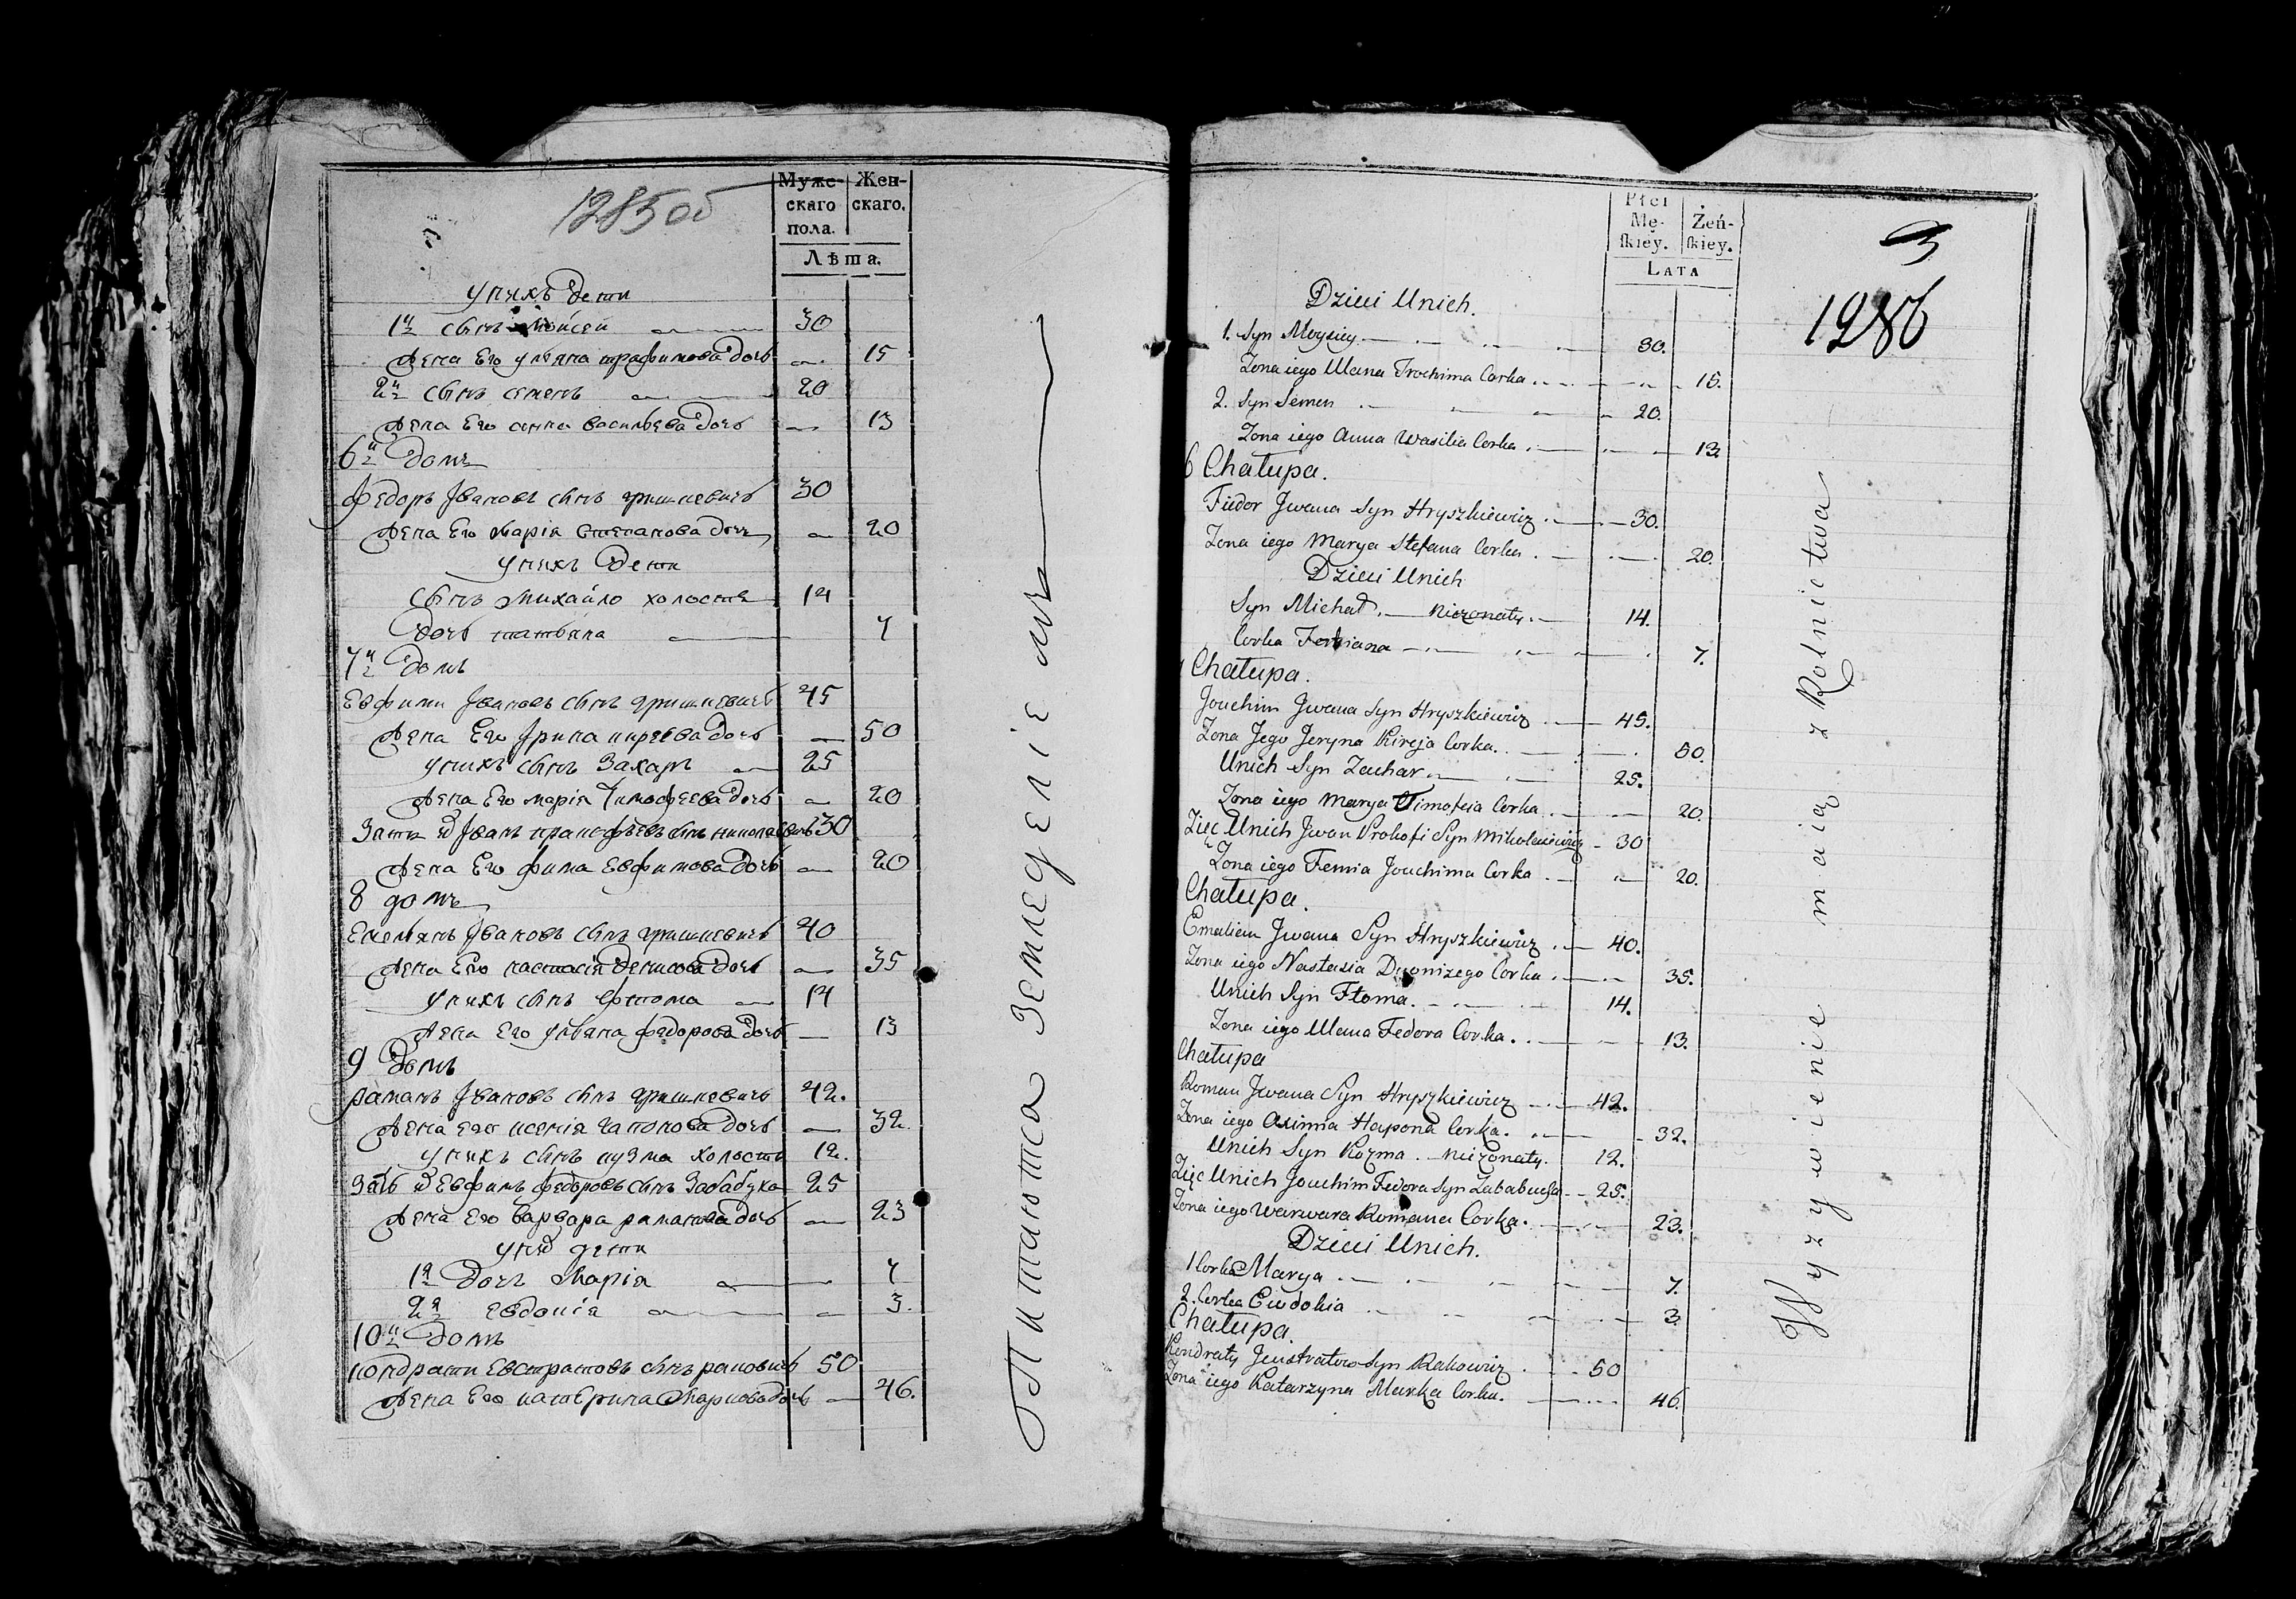 1285об
Муже-
скаго
пола.
Жен-
скаго.
Лѣта.
у нихъ дети
1й сынъ моисей 30
Жена Его ульяна трафимова дочь 15
2й сынъ семенъ 20
Жена Его анна васильева дочь 13
6й Домъ
федоръ Ивановъ сынъ гришкевичъ 30
Жена Его Марія степанова дочь 20
у нихъ Дети
сынъ михайло холостъ 14
Дочь татьяна 7
7й Домъ
Евфими Ивановъ сынъ гришкевичъ 45
Жена Его Ирина кирѣева дочь 50
у нихъ сынъ Захаръ 25
Жена Его марія Тимофеева дочь 20
Зять Иванъ пракофьевъ сынъ 30
Жена Его фима Евфимова дочь 20
8 домъ
Емельянъ Ивановъ сынъ гришкевичъ 40
Жена Его настасія денисова дочь 35
у нихъ сынъ фтома 14
Жена Его ульяна федорова дочь 13
9 Домъ
раманъ Ивановъ сынъ гришкевичъ 42.
Жена его ксенія гапонова дочь 32
у нихъ сынъ кузма холостъ 12.
Зять Евфимъ федоровъ сынъ Забабуха 25
Жена Его варвара раманова дочь 23
дети
1я Дочь Марія 7
2я евдокія 3.
10й Домъ
кондрати Евстратовъ сынъ раковичъ 50
Жена Его катерина Маркова дочь 46.
Питаются Земледеліемъ
Płci
Mę-
ſkiey.
Żeń-
ſkiey.
LATA
3
1286
Dzieci Unich.
1. Syn Moysiey 30.
Zona iego Ulana Trochima Corka 15.
2. Syn Semen 20.
Zona iego Anna Wasilia Corka 13.
6 Chałupa.
Fiedor Jwana Syn Hryszkiewicz 30.
Zona iego Marya Stefana Corka 20.
Dzieci Unich
Syn Michał. niezonaty. 14.
Corka 7.
Chałupa.
Jouchim Jwana Syn Hryszkiewicz 45.
Zona Jego Jeryna Kireja Corka. 50.
Unich Syn Zachar 25.
Zona iego Marya Timofeia Corka 20.
Zięć Unich Jwan Prokofi Syn Mikołaiewicz 30
Zona iego Femia Jouchima Corka 20.
Chałupa.
Emalian Jwana Syn Hryszkiewicz 40.
Zona iego Nastasia Dyonizego Corka 35.
Unich Syn Ftoma. 14.
Zona iego Ulana Fedora Corka. 13.
Chałupa
Roman Jwana Syn Hryszkiewicz 42.
Zona iego Axinnia Hapona Corka. 32.
Unich Syn Kozma. niezonaty. 12.
Zięć Unich Jouchim Fedora Syn Zababucha 25.
Zona iego Warwara Romana Corka. 23.
Dzieci Unich.
1 Corka Marya 7.
2. Corka Ewdokia 3.
Chałupa.
Kondraty Syn Rakowicz 50
Zona iego Katarzyna Marka Corka. 46.
Wyzywienie maią z Rolnictwa